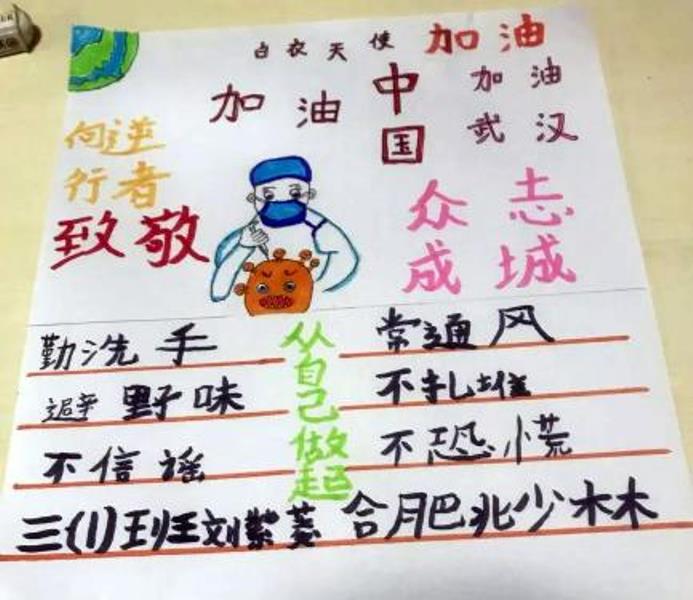 白衣天使 加油
加油 中国
加油
武汉
向逆
行者
致敬
众志
成城
勤洗手
避野味
不信谣
从自己做起
常通风
不扎堆
不恐慌
三(1)班刘紫菱 合肥北少林木